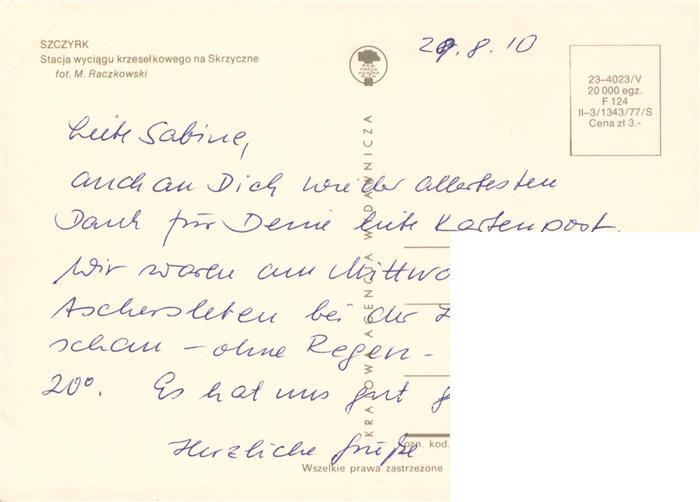 SZCZYRK
Stacja wyciągu krzesełkowego na Skrzyczne
fot. M. Raczkowski
29.8.10
23-4023/V
20 000 egz.
F 124
II-3/1343/77/S
Cena zł 3.-
KRAJOWA AGENCJA WYDAWNICZA
Liebe Sabine,
auch an Dich wieder allerbesten
Dank für Deine liebe Kartenpost.
Wir waren am Mittwo
Aschersleben bei der
schau - ohne Regen -
20°. Es hat uns gut g
Herzliche Grüße
ozn. kod.
Wszelkie prawa zastrzeżone